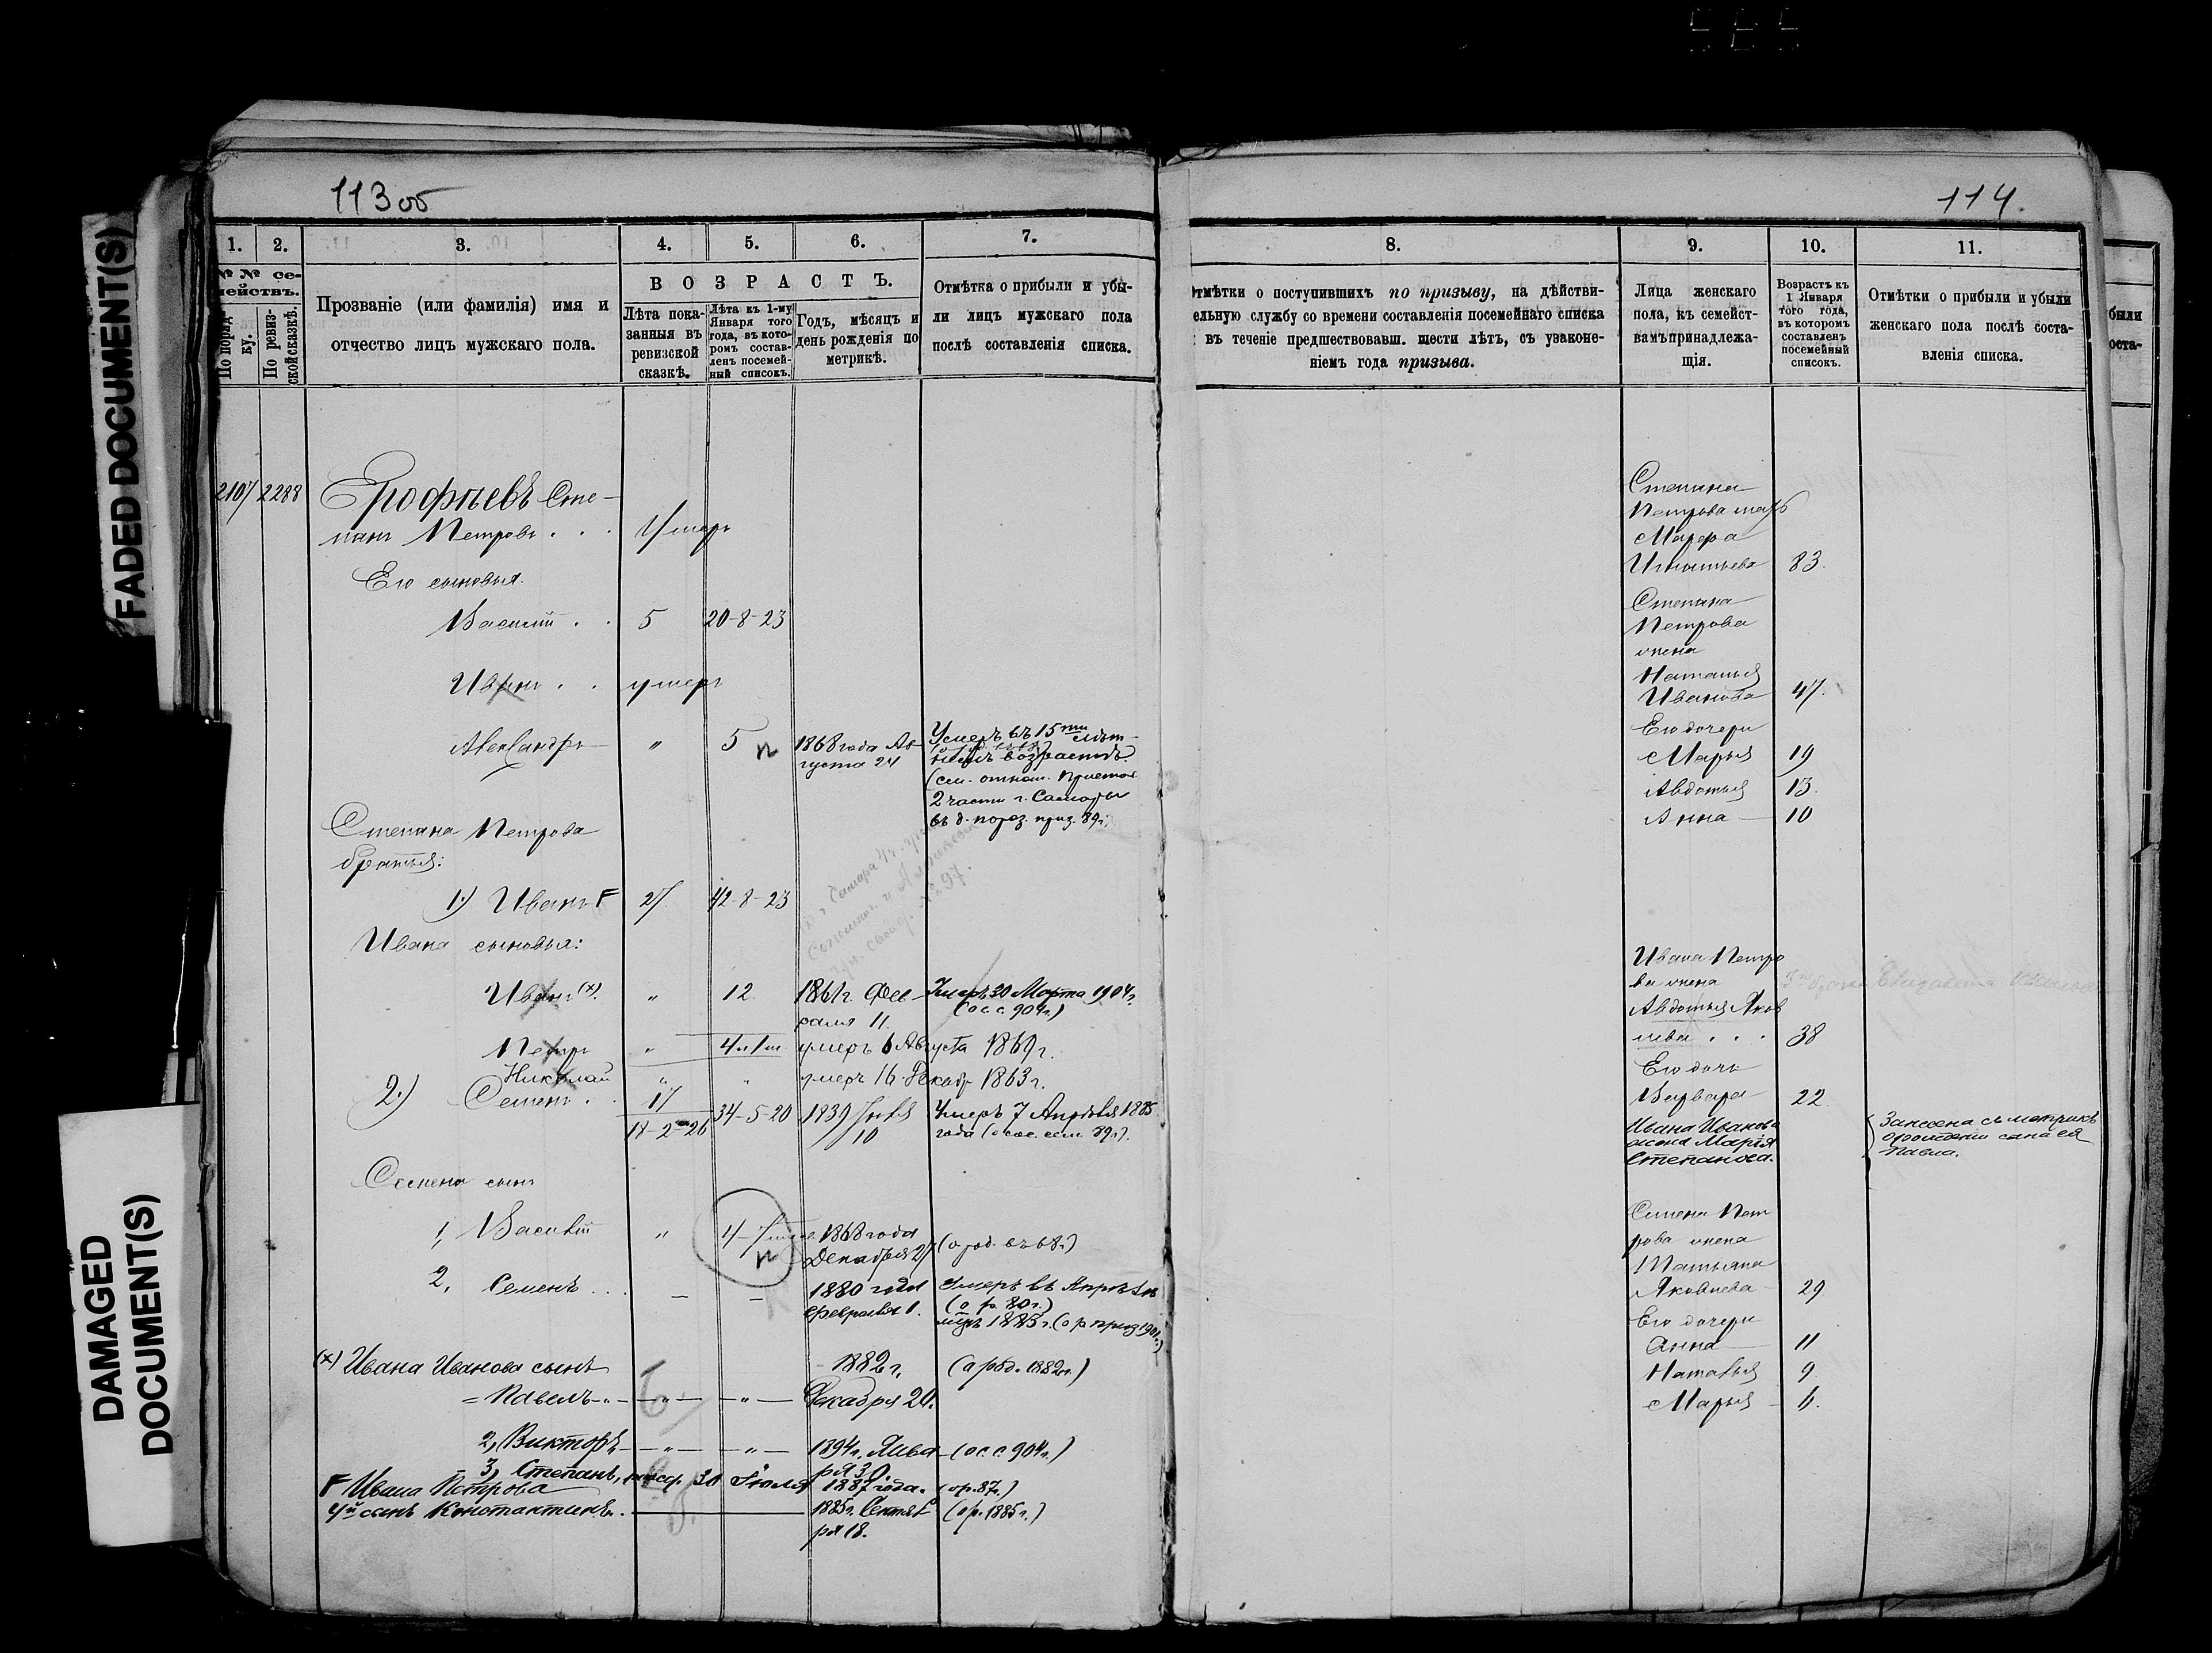 FADED DOCUMENT(S)
DAMAGED
DOCUMENT(S)
113 об
1.
2.
3.
4.
5.
6.
7.
№ № се-
мействъ.
По поряд-
ку.
По ревиз-
ской сказкѣ.
Прозваніе (или фамилія) имя и
отчество лицъ мужскаго пола.
ВОЗРАСТЪ.
Лѣта пока-
занныя въ
ревизской
сказкѣ.
Лѣта къ 1-му
Января того
года, въ кото-
ромъ состав-
ленъ посемей-
ный списокъ.
Годъ, мѣсяцъ и
день рожденія по
метрикѣ.
Отмѣтка о прибыли и убы-
ли лицъ мужскаго пола
послѣ составленія списка.
2107 2288 Ерофѣевъ Сте-
панъ Петровъ . . . Умеръ
Его сыновья.
Василій . . 5 20-8-23
Иванъ . . умеръ
Александръ " 5 1868 года Ав-
густа 24
Умеръ въ 15ти лѣт-
немъ возрастѣ.
(см. отнош. Пристава
2 части г. Самары
въ д. приз. 89 г.
Степана Петрова
братья:
1.) Иванъ F 27 42-8-23
Ивана сыновья:
Иванъ (х). " 12 1861 г. Фев-
раля 11.
Умеръ 30 Марта 1904 г.
(о с. с. 904 г.)
Петръ " умеръ 6 Августа 1869 г.
Николай " " умеръ 16 Декабр 1863 г.
2.) Семенъ . . 17 34-5-20 1839 Іюля
18-2-26 10
Умеръ 7 Апрѣля 1885
года
Семена сынъ
1, Василій " 1868 года
Декабря 27 (о род. въ 68 г.)
2, Семенъ . . . — — 1880 года
Февраля 1.
Умеръ въ Апрѣлѣ
(о р. 80 г.)
мцѣ 1883 г. (о р приз 1901 г.)
(х) Ивана Иванова сынъ 1882 г. (о род. 1882 г.)
= Павелъ — " — — " — Декабря 20.
2, Викторъ — " — — " — 1894 г. Янва- (о с. с. 904 г.)
ря 30.
3, Степанъ, 30 Іюля 1887 года. (о р. 87 г.)
F Ивана Петрова
4й сынъ Константинъ. 1885 г. Сентяб- (о р. 1885 г.)
ря 18.
114.
8.
9.
10.
11.
Отмѣтки о поступившихъ по призыву, на дѣйстви-
ельную службу со времени составленія посемейнаго списка
въ теченіе предшествовавш. шести лѣтъ, съ указоне-
ніемъ года призыва.
Лица женскаго
пола, къ семейст-
вамъ принадлежа-
щія.
Возрастъ къ
1 Января
того года,
въ которомъ
составленъ
посемейный
списокъ.
Отмѣтки о прибыли и убыли
женскаго пола послѣ соста-
вленія списка.
были
оста-
Степана
Петрова мать
Марфа
Игнатьева 83.
Степана
Петрова
жена
Наталья
Иванова 47.
Его дочери
Марья 19
Авдотья 13.
Анна 10
Ивана Петро
ва жена
Авдотья Яков
лева . . . 38
Его дочь
Варвара 22
Ивана Иванова
жена Марія
Степанова.
Занесена съ метрикъ
о рожденіи сына ея
Павла.
Семена Пет
рова жена
Татьяна
Яковлева 29
Его дочери
Анна 11
Наталья 9
Марья 6.